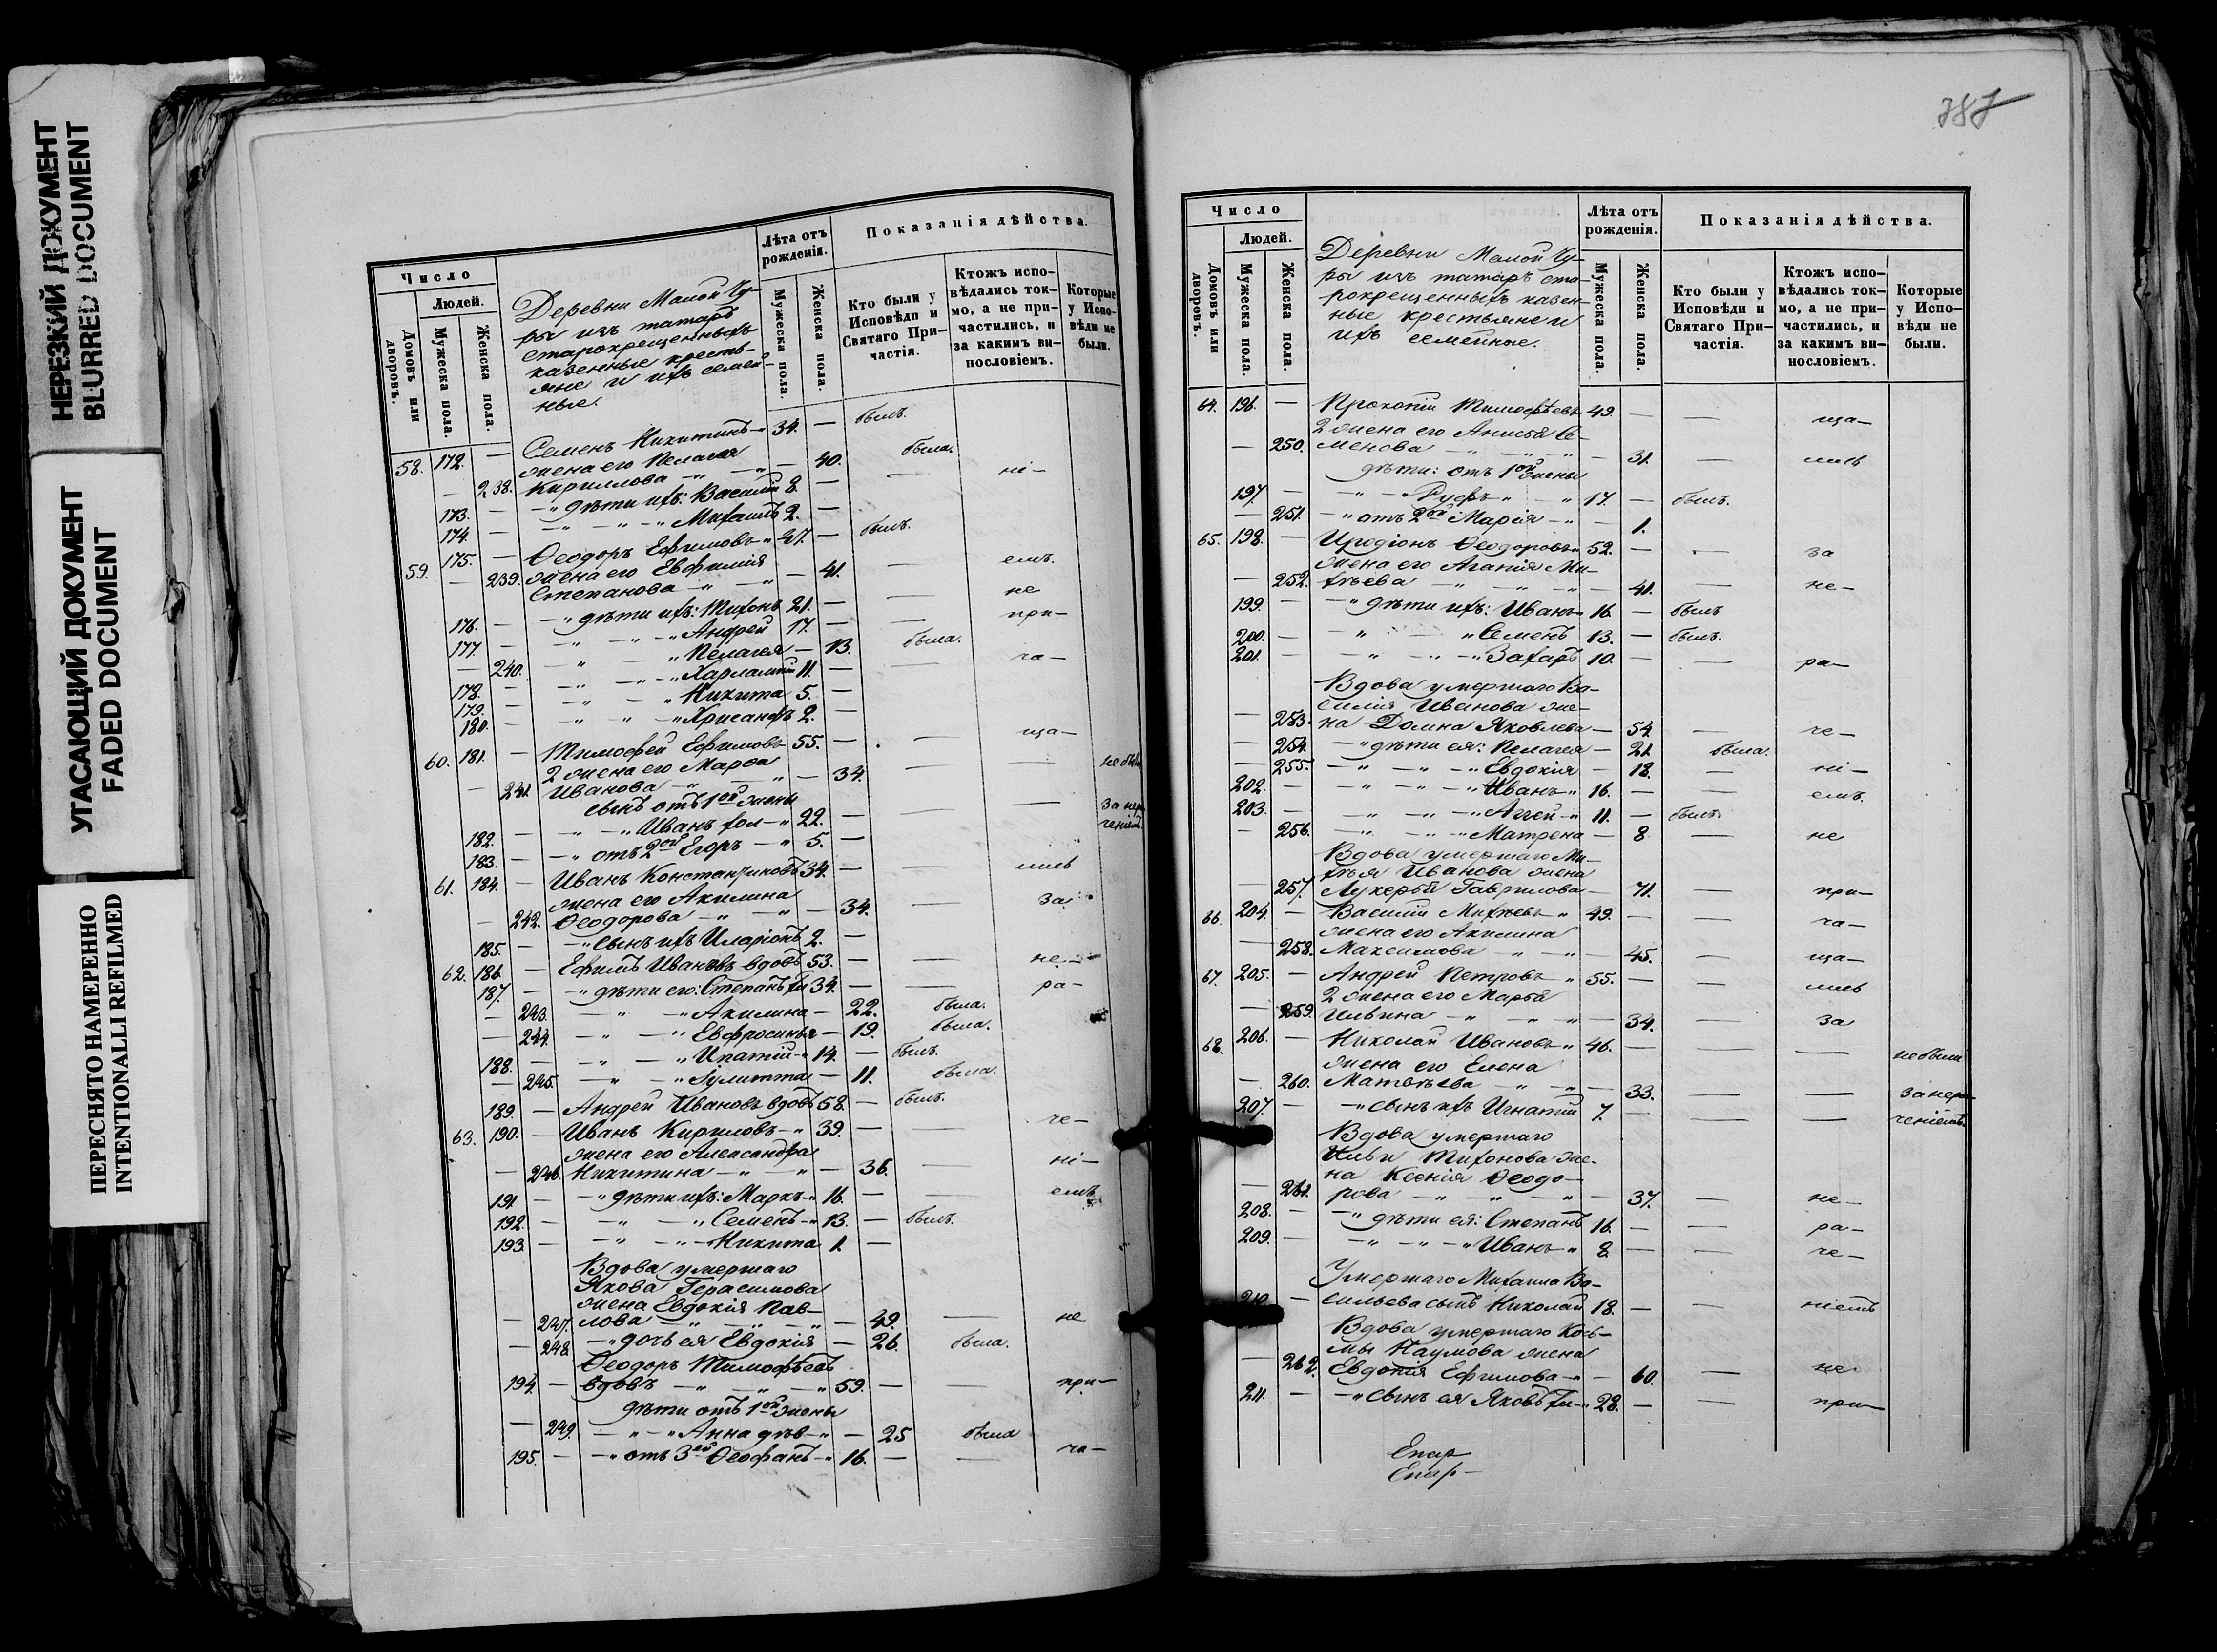 НЕРЕЗКИЙ ДОКУМЕНТ
BLURRED DOCUMENT
УГАСАЮЩИЙ ДОКУМЕНТ
FADED DOCUMENT
ПЕРЕСНЯТО НАМЕРЕННО
INTENTIONALLI REFILMED
Число
Людей.
Домовъ или дворовъ.
Мужеска пола.
Женска пола.
Деревни Малой Чу-
ры изъ татаръ
старокрещенныхъ
казенные кресть-
яне и ихъ семей-
ные.
Лѣта отъ рожденія.
Мужеска пола.
Женска пола.
Показанія дѣйства.
Кто были у Исповѣди и Святаго Причастія.
Ктожъ испо-
вѣдались ток-
мо, а не при-
частились, и
за какимъ ви-
нословіемъ.
Которые
у Испо-
вѣди не
были.
58. 172. — Семенъ Никитинъ 34. — былъ.
жена его Пелагея
— 238. Кирилова — 40. была.
173. — дѣти ихъ: Василій 8. — — ні—
174. — Михаилъ 2. —
59. 175. — Ѳеодоръ Ефимовъ 47. — былъ.
— 239. жена его Евфимія
Степанова — 41. — емъ.
176. — дѣти ихъ: Тихонъ 21. — — не
177. — Андрей 17. — — при—
— 240. Пелагея — 13. была.
178. — Харлампій 11. — — ча—
179. — Никита 5. —
180. — Хрисанфъ 2. —
60. 181. — Тимофей Ефимовъ 55. — — ща—
2 жена его Марѳа
— 241. Иванова — 34. — — не были
сынъ отъ 1ой жены
182. — Иванъ хол— 22. — — — за нера
183. — отъ 2ой Егоръ 5. — ченіемъ.
61. 184. — Иванъ Константиновъ 34. — — лись
жена его Акилина
— 242. Ѳеодорова — 34. — за
185. — сынъ ихъ Иларіонъ 2. —
62. 186. — Ефимъ Ивановъ вдовъ 53. — — не—
187. — дѣти его: Степанъ 34. — — ра—
— 243. Акилина — 22. была.
— 244. Евфросинья — 19. была.
188. — Ипатій 14. — былъ.
— 245. Іулитта — 11. была.
189. — Андрей Ивановъ вдовъ 58. — былъ.
63. 190. — Иванъ Кириловъ 39. — — че—
жена его Александра
— 246. Никитина — 36. — ні—
191. — дѣти ихъ: Маркъ 16. — — емъ
192. — Семенъ 13. — былъ.
193. — Никита 1. —
Вдова умершаго
Якова Герасимова
жена Евдокія Пав-
— 247. лова — 49. — не
— 248. дочь ея Евдокія — 26. была.
Ѳеодоръ Тимофѣевъ
194. — вдовъ 59. — — при—
дѣти отъ 1ой жены
— 249. Анна дѣв — 25 была
195. — отъ 3ей Ѳеофанъ 16. — — ча—
Число
Людей.
Домовъ или дворовъ.
Мужеска пола.
Женска пола.
Деревни Малой Чу-
ры изъ татаръ ста-
рокрещенныхъ казен-
ные крестьяне и
ихъ семейные.
Лѣта отъ рожденія.
Мужеска пола.
Женска пола.
Показанія дѣйства.
Кто были у Исповѣди и Святаго Причастія.
Ктожъ испо-
вѣдались ток-
мо, а не при-
частились, и
за какимъ ви-
нословіемъ.
Которые
у Испо-
вѣди не
были.
64. 196. — Прокопій Тимофѣевъ 49. — — ща—
2 жена его Анисія Се-
— 250. менова — 31. — лись
дѣти: отъ 1ой жены
197. — Руфъ 17. — былъ.
— 251. отъ 2ой Марія — 1.
65. 198. — Иродіонъ Ѳеодоровъ 52. — — за
жена его Агапія Ми-
— 252. хѣева — 41. — не—
199. — дѣти ихъ: Иванъ 16. — былъ
200. — Семенъ 13. — былъ.
201. — Захаръ 10. — — ра—
Вдова умершаго Ва-
силія Иванова же-
— 253. на Домна Яковлева — 54. — че—
— 254. дѣти ея: Пелагея — 21. была.
— 255. Евдокія — 18. — ні—
202. — Иванъ 16. — — емъ.
203. — Аггей 11. — былъ.
— 256. Матрена — 8. — не
Вдова умершаго Ми-
хѣя Иванова жена
— 257. Лукерья Гаврилова — 71. — при—
66. 204. — Василій Михѣевъ 49. — — ча—
жена его Акилина
— 258. Максимова — 45. — ща—
67. 205. — Андрей Петровъ 55. — — лись
2 жена его Марѳа
— 259. Ильина — 34. — за
68. 206. — Николай Ивановъ 46. — — — не были
жена его Елена
— 260. Матвѣева — 33. — — за нера—
207. — сынъ ихъ Игнатій 7. — — — ченіемъ.
Вдова умершаго
Ильи Тихонова же-
на Ксенія Ѳеодо-
— 261. рова — 37. — не—
208. — дѣти ея: Степанъ 16. — — ра—
209. — Иванъ 8. — — че—
Умершаго Михаила Ва-
210. — сильева сынъ Николай 18. — — ніемъ
Вдова умершаго Кось-
мы Наумова жена
— 262. Евдокія Ефимова — 60. — не
211. — сынъ ея Яковъ 28. — — при—